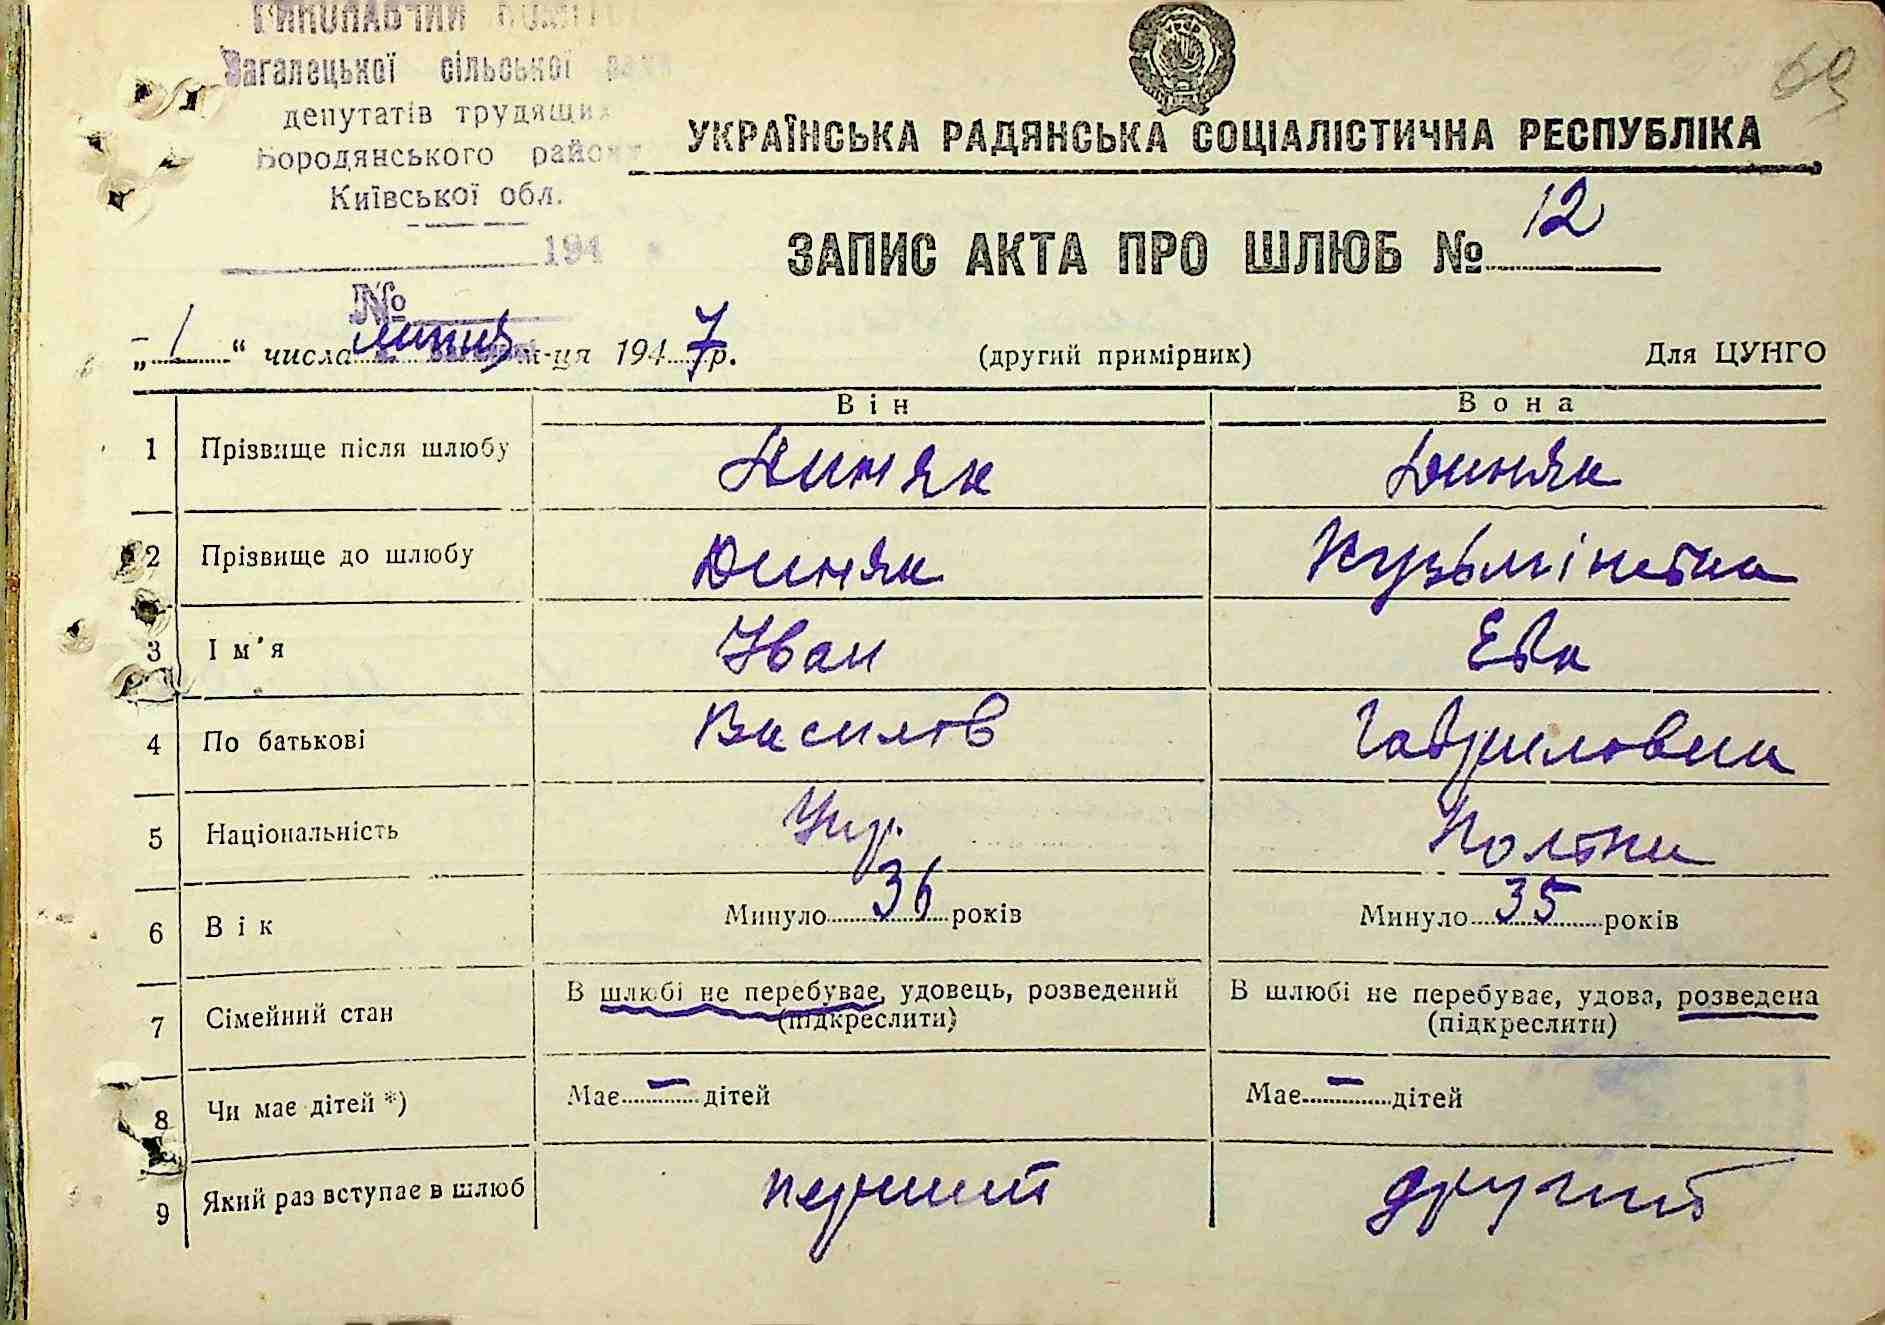 Загалецької сільської
депутатів трудящих
Бородянського району
Київської обл.
194
№
69
УКРАЇНСЬКА РАДЯНСЬКА СОЦІАЛІСТИЧНА РЕСПУБЛІКА
ЗАПИС АКТА ПРО ШЛЮБ № 12
„ 1 “ числа липня м-ця 1947 р. (другий примірник) Для ЦУНГО
Він Вона
1 Прізвище після шлюбу Диняк Диняк
2 Прізвище до шлюбу Диняк
3 Ім'я Іван Ева
4 По батькові Василов Гавриловна
5 Національність Укр. Полька
6 Вік Минуло 36 років Минуло 35 років
7 Сімейний стан В шлюбі не перебуває, удовець, розведений В шлюбі не перебуває, удова, розведена
(підкреслити) (підкреслити)
8 Чи має дітей *) Має — дітей Має — дітей
9 Який раз вступає в шлюб перший другий